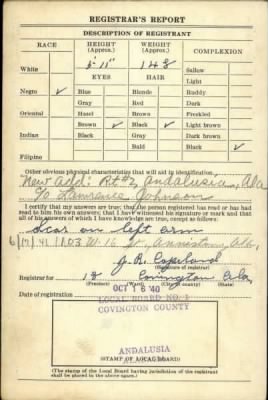 REGISTRAR'S REPORT
DESCRIPTION OF REGISTRANT
RACE HEIGHT (Approx.) WEIGHT (Approx.) COMPLEXION
5' 11" 148
White Sallow
EYES HAIR Light
Negro ✓ Blue Blonde Ruddy
Gray Red Dark
Oriental Hazel Brown Freckled
Brown ✓ Black ✓ Light brown
Indian Black Gray Dark brown
Bald Black ✓
Filipino
Other obvious physical characteristics that will aid in identification
New Add: Rt #2, Andalusia, Ala
% Lawrence Johnson
I certify that my answers are true; that the person registered has read or has had
read to him his own answers; that I have witnessed his signature or mark and that
all of his answers of which I have knowledge are true, except as follows:
Scar on left arm
6/17/41 1103 W. 16 St., Anniston, Ala.
J. R. Copeland
(Signature of registrar)
Registrar for 18 Covington Ala.
(Precinct) (Ward) (City or county) (State)
Date of registration OCT 16 40
LOCAL BOARD NO. 1
COVINGTON COUNTY
ANDALUSIA
(STAMP OF LOCAL BOARD)
(The stamp of the Local Board having jurisdiction of the registrant
shall be placed in the above space.)